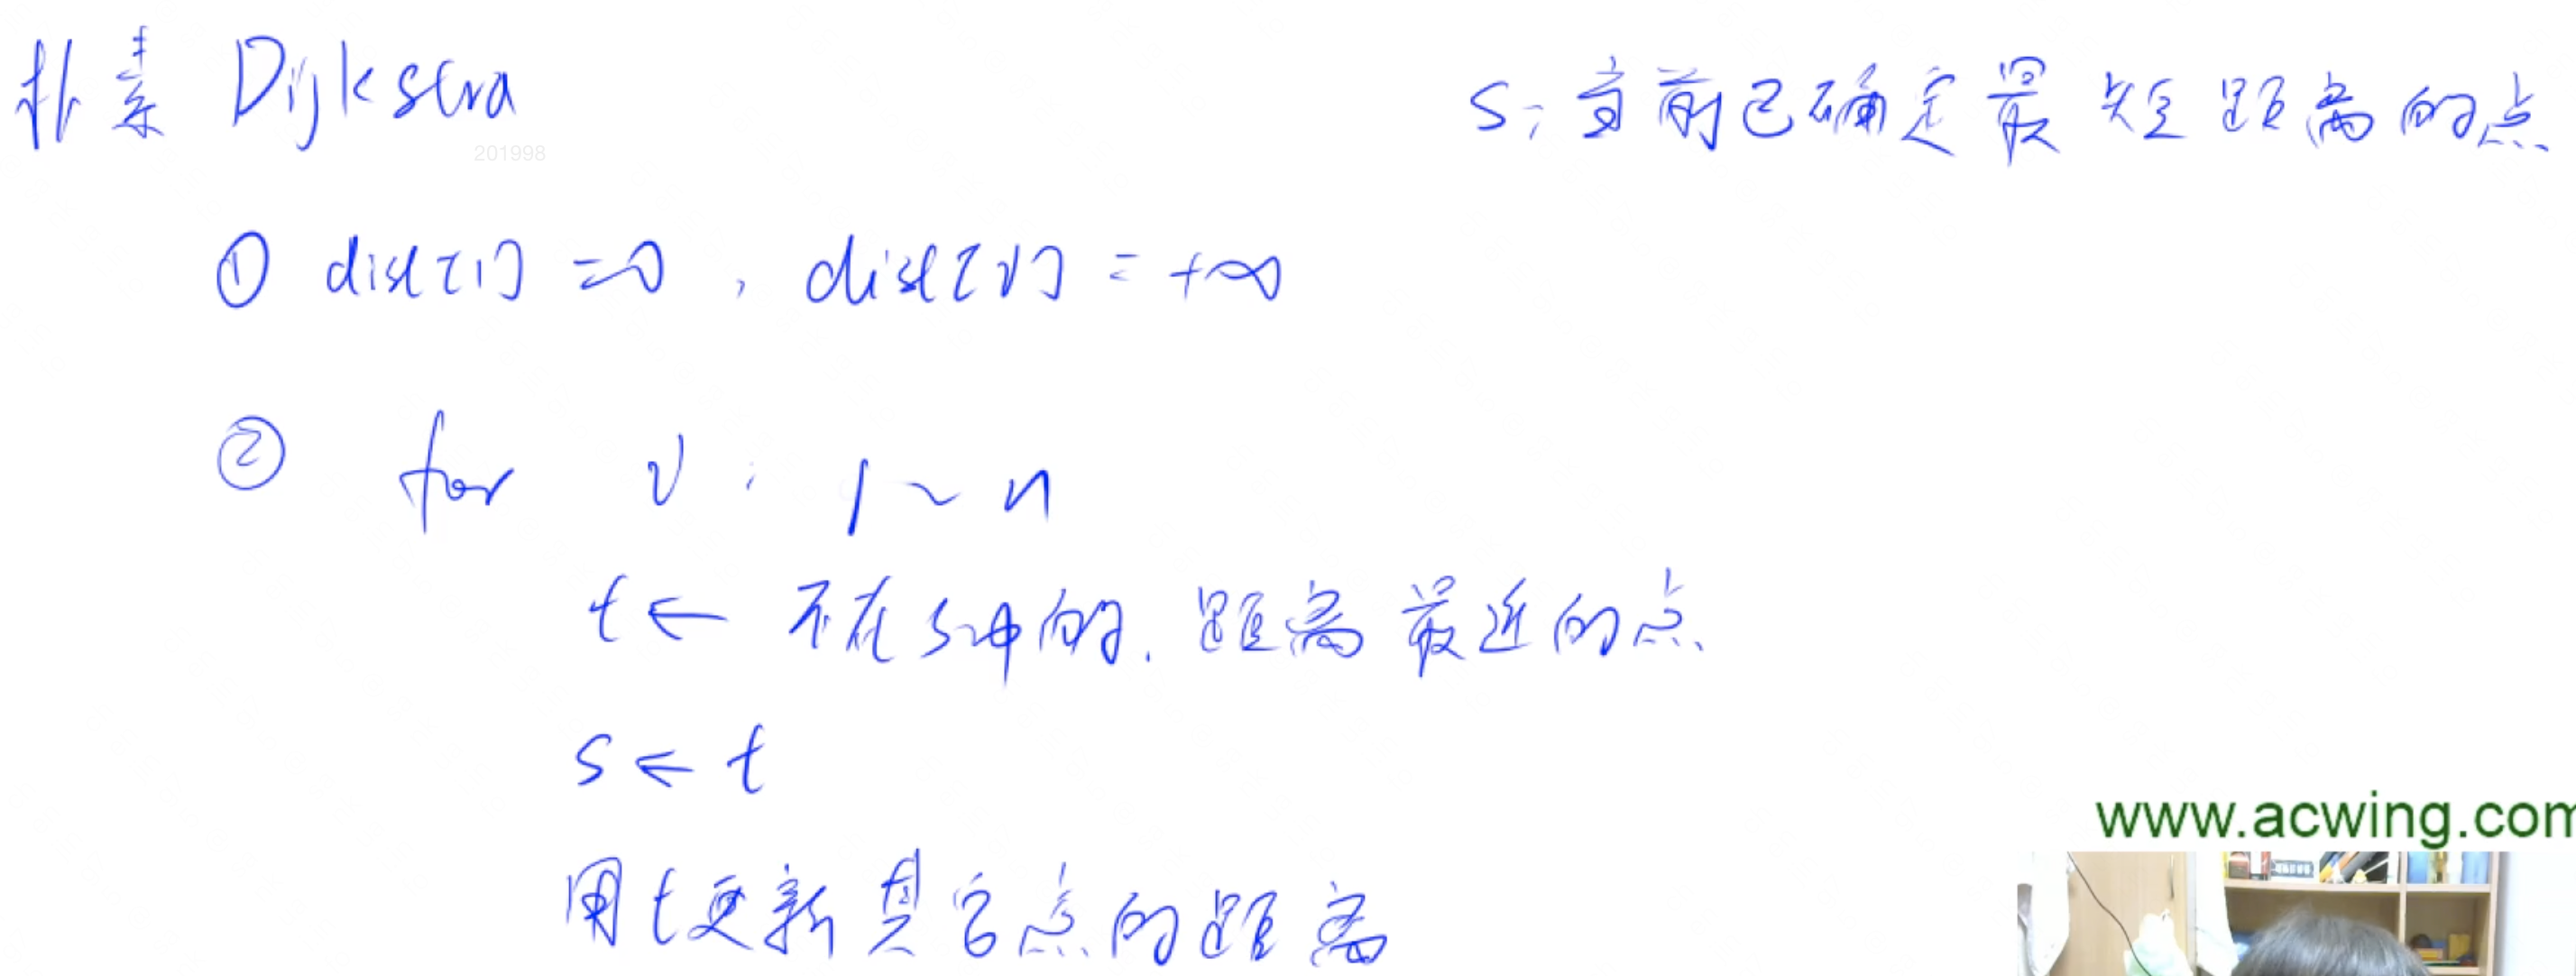 朴素 Dijkstra
S: 当前已确定最短距离的点
201998
① dist[1] = 0, dist[i] = +∞
② for i: 1 ~ n
t ← 不在s中的, 距离最近的点
s ← t
用t更新其它点的距离
www.acwing.com